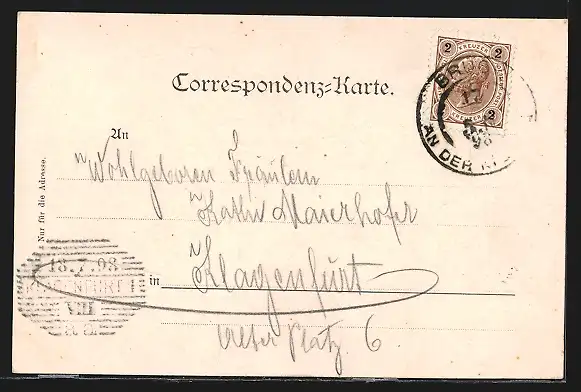 Correspondenz-Karte.
2 KREUZER 2
KREUZER 2
BRUCK
17
98
AN DER
An
Wohlgeboren Fräulein
Kathi Maierhofer
in Klagenfurt
Alter Platz 6
Nur für die Adresse.
18.7.98
KLAGENFURT 1
VIII